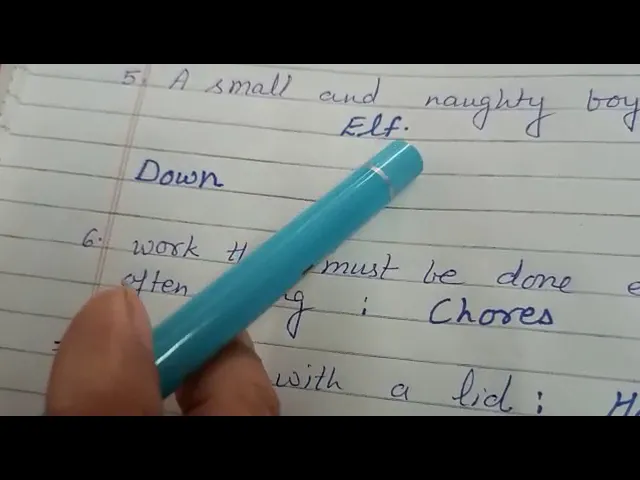 5. A small and naughty boy
Elf.
Down
6. work must be done
often : Chores
with a lid :